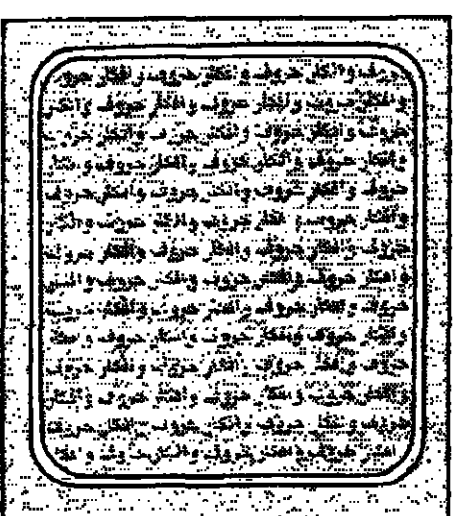 حروف وأفكار حروف وأفكار حروف وأفكار حروف
وأفكار حروف وأفكار حروف وأفكار حروف وأفكار
حروف وأفكار حروف وأفكار حروف وأفكار حروف
وأفكار حروف وأفكار حروف وأفكار حروف
حروف وأفكار حروف وأفكار حروف وأفكار حروف
وأفكار حروف أفكار حروف حروف وأفكار
حروف وأفكار حروف وأفكار حروف وأفكار حروف
وأفكار حروف وأفكار حروف وأفكار حروف
حروف وأفكار حروف وأفكار حروف وأفكار
وأفكار حروف وأفكار حروف وأفكار حروف
حروف وأفكار حروف أفكار حروف وأفكار حروف
وأفكار حروف وأفكار حروف وأفكار حروف وأفكار
حروف وأفكار حروف وأفكار حروف أفكار حروف
أفكار حروف وأفكار حروف وأفكار حروف